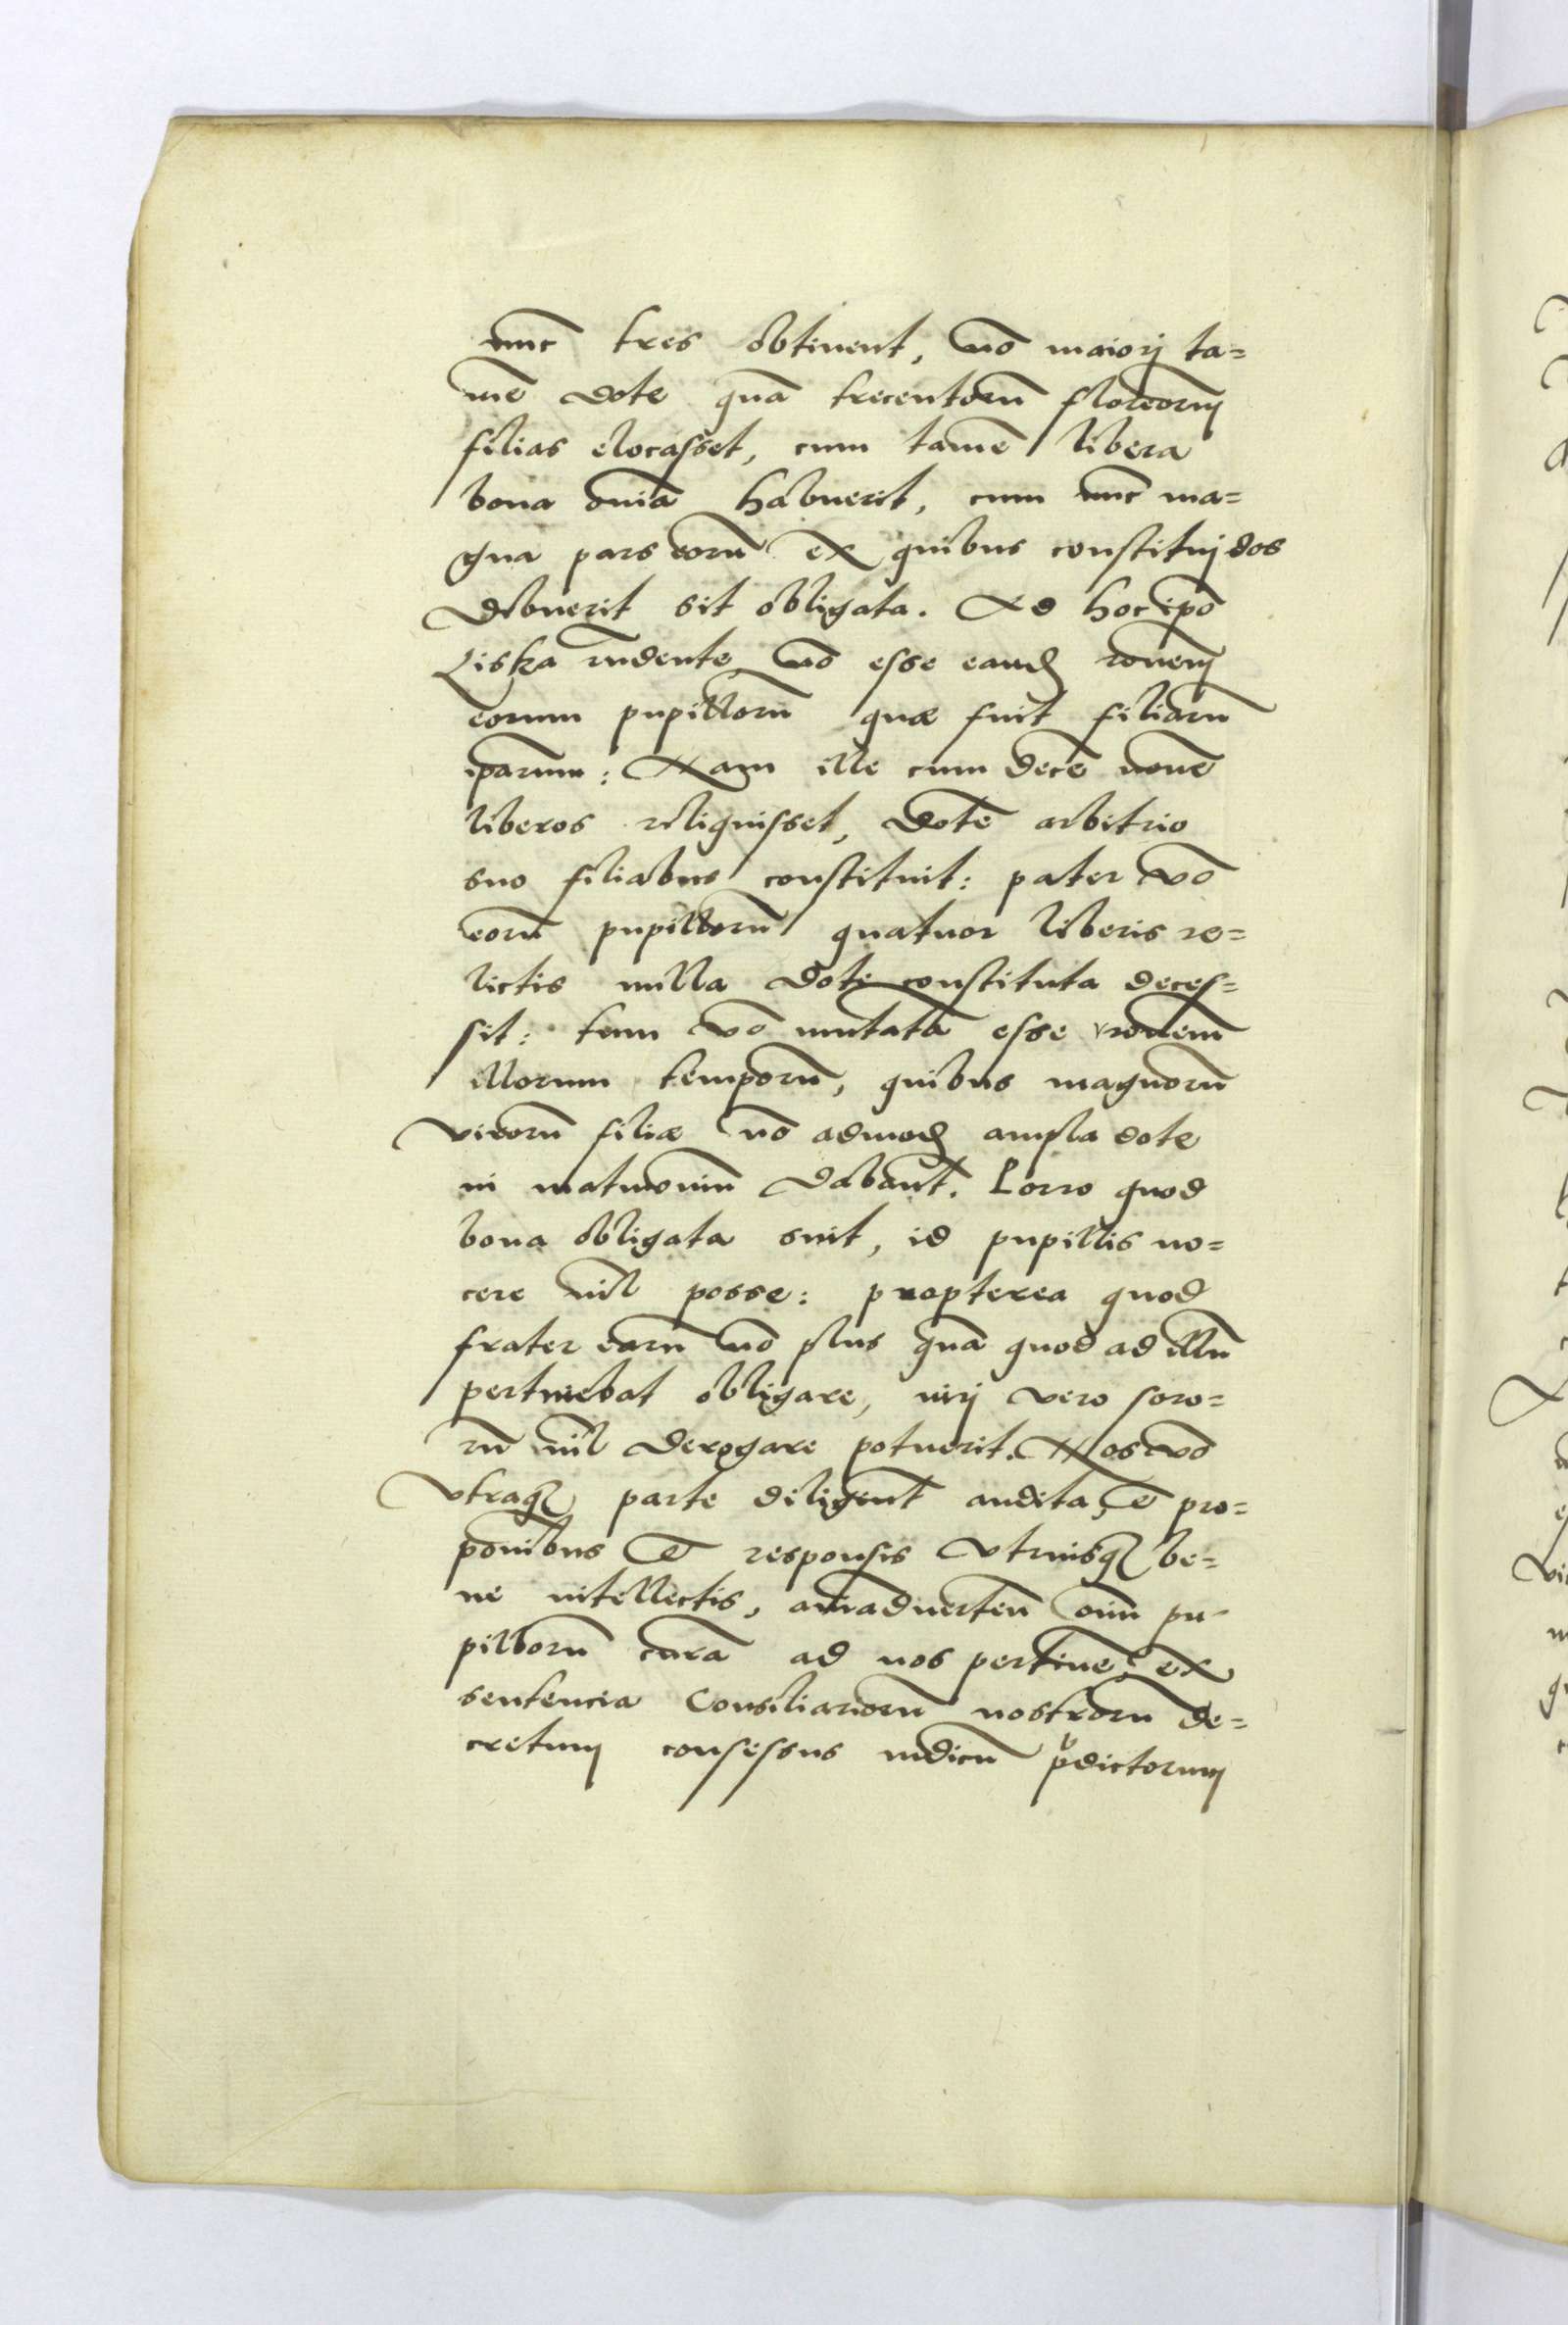 nunc tres obtinent, nō maiorj ta=
mē dote quā trecentorū florenorum
filias elocasset, cum tamē libera
bona omnia habuerit, cum nunc ma=
gna pars eorū ex quibus constituj dos
debuerit sit obligata. Ad hoc ipō
Liska rñdente nō esse eandē rōnem
eorum pupillorū quæ fuit filiarū
iparum: Nam ille cum decē nouē
liberos reliquisset, dotē arbitrio
suo filiabus constituit: pater vō
eorū pupillorū quatuor liberis re=
lictis nulla dote constituta deces=
sit: tum vō mutatā esse rōnem
illorum temporū, quibus magnorū
virorū filiæ nō admodū ampla dote
in matrimoniū dabant̄. Porro quod
bona obligata sint, id pupillis no=
cere nil posse: propterea quod
frater earū nō plus quā quod ad illū
pertinebat obligare, iurj vero soro=
rū nil derogare potuerit. Nos vō
vtraq̄ parte diligent̄ audita, et pro=
ponibus et responsis vtriusq̄ be=
ne intellectis, aīaduertēn oīm pu=
pillorū curā ad nos pertine: ex
sentencia Consiliariorū nostrorū de=
cretum consessus iudicū p̄dictorum